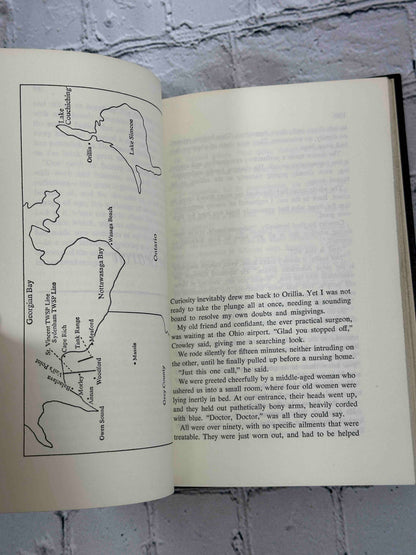 Georgian Bay
Lake
Couchiching
Orillia
Lake Simcoe
St. Vincent TWSP Line
Sydenham TWSP Line
Cape Rich
Tank Range
Meaford
Nottawasaga Bay
Wasaga Beach
Ontario
Morley
Woodford
Annan
Owen Sound
Maxie
Grey County
Curiosity inevitably drew me back to Orillia. Yet I was
not ready to take the plunge all at once, needing a sounding
board to resolve my own doubts and misgivings.
My old friend and confidant, the ever practical surgeon,
was waiting at the Ohio airport. "Glad you stopped off,"
Crowley said, giving me a searching look.
We rode silently for fifteen minutes, neither intruding on
the other, until he finally pulled up before a nursing home.
"Just this one call," he said.
We were greeted cheerfully by a middle-aged woman who
ushered us into a small room, where four old women were
lying inertly in bed. At our entrance, their heads went up,
and they held out pathetically bony arms, heavily corded
with blue. "Doctor, Doctor," was all they could say.
All were over ninety, with no specific ailments that were
treatable. They were just worn out, and had to be helped